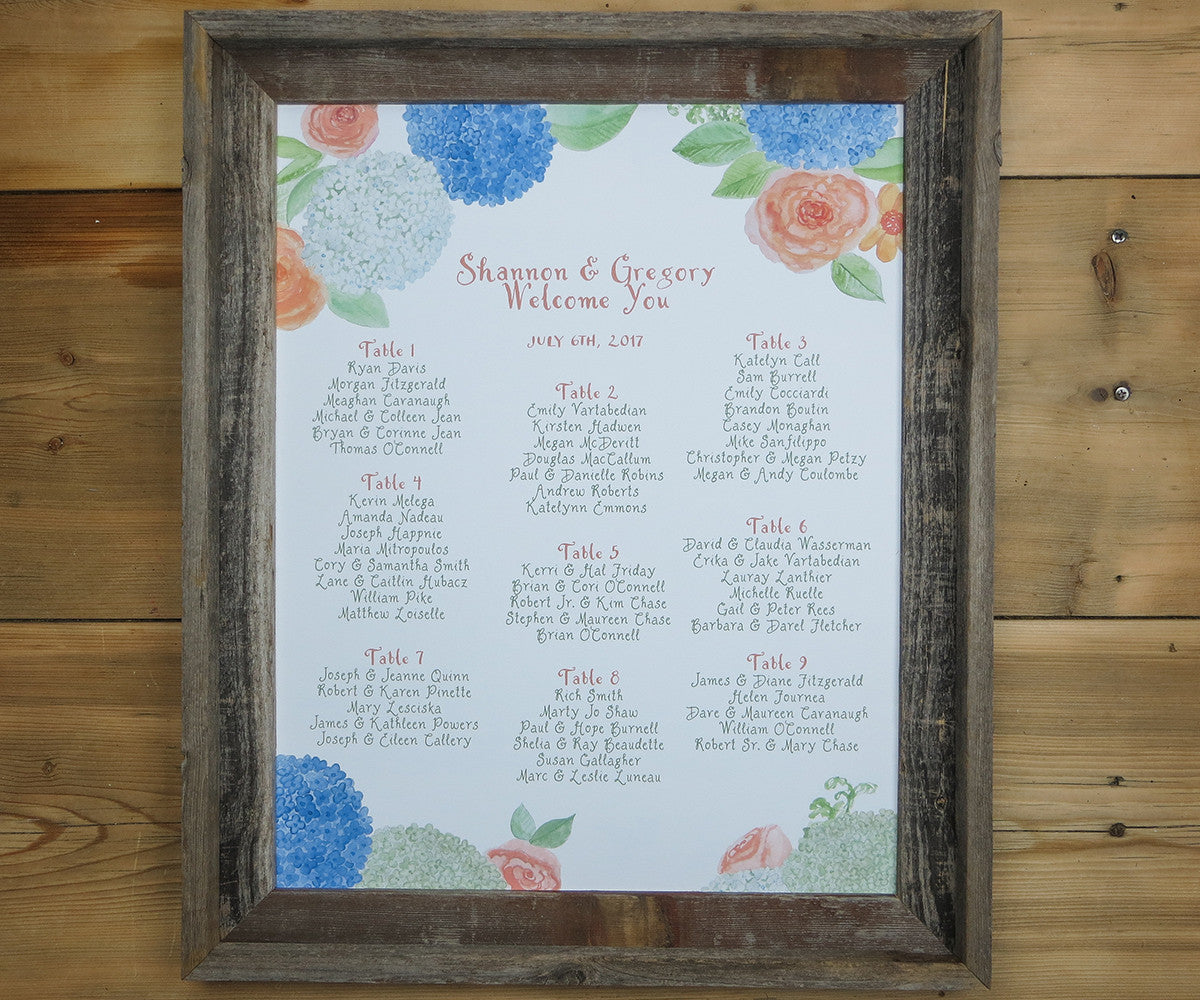 Shannon & Gregory
Welcome You
JULY 6TH, 2017
Table 1
Ryan Davis
Morgan Fitzgerald
Meaghan Cavanaugh
Michael & Colleen Jean
Bryan & Corinne Jean
Thomas O'Connell
Table 2
Emily Vartabedian
Kirsten Hadwen
Megan McDevitt
Douglas MacCallum
Paul & Danielle Robins
Andrew Roberts
Katelynn Emmons
Table 3
Katelyn Call
Sam Burrell
Emily Cocciardi
Brandon Boutin
Casey Monaghan
Mike Sanfilippo
Christopher & Megan Petzy
Megan & Andy Coulombe
Table 4
Kerin Melega
Amanda Nadeau
Joseph Happnie
Maria Mitropoulos
Cory & Samantha Smith
Lane & Caitlin Hubacz
William Pike
Matthew Loiselle
Table 5
Kerri & Hal Friday
Brian & Cori O'Connell
Robert Jr. & Kim Chase
Stephen & Maureen Chase
Brian O'Connell
Table 6
David & Claudia Wasserman
Erika & Jake Vartabedian
Lauray Lanthier
Michelle Ruelle
Gail & Peter Rees
Barbara & Darel Fletcher
Table 7
Joseph & Jeanne Quinn
Robert & Karen Pinette
Mary Lesciska
James & Kathleen Powers
Joseph & Eileen Callery
Table 8
Rich Smith
Marty Jo Shaw
Paul & Hope Burnell
Shelia & Ray Beaudette
Susan Gallagher
Marc & Leslie Luneau
Table 9
James & Diane Fitzgerald
Helen Fournea
Dave & Maureen Cavanaugh
William O'Connell
Robert Sr. & Mary Chase